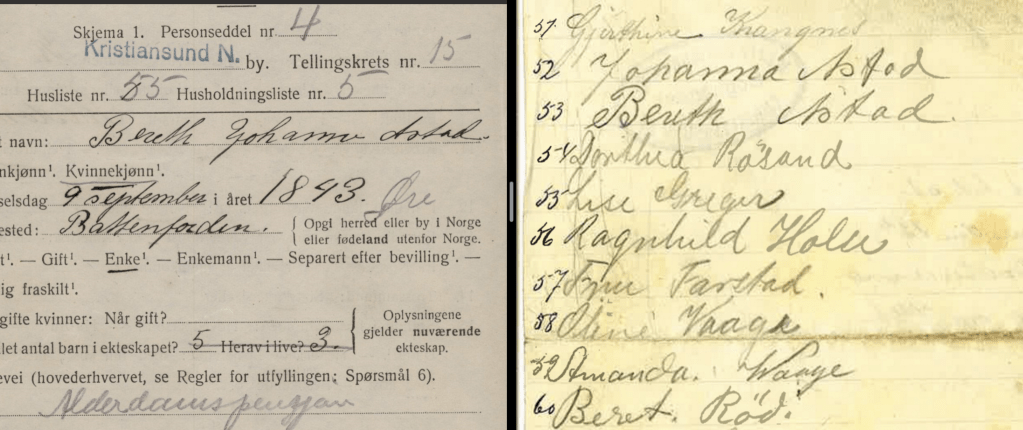 Skjema 1. Personseddel nr 4
Kristiansund N. by. Tellingskrets nr. 15
Husliste nr. 55 Husholdningsliste nr. 5
t navn: Bereth Johanne Astad
nkjønn¹. Kvinnekjønn¹.
selsdag 9 september i året 1843. Øre
ested: Battenforden. { Opgi herred eller by i Norge
eller fødeland utenfor Norge.
t¹. — Gift¹. — Enke¹. — Enkemann¹. — Separert efter bevilling¹. —
ig fraskilt¹.
gifte kvinner: Når gift?
Oplysningene
gjelder nuværende
ekteskap.
let antal barn i ekteskapet? 5 Herav i live? 3.
evei (hovederhvervet, se Regler for utfyllingen: Spørsmål 6).
Alderdomspensjon
51 Gjerthine Krangnes
52 Johanna Astad
53 Bereth Astad.
54 Dorthea Rösand
55 Lise Greger
56 Ragnhild Holse
57 Fru Farstad.
58 Oline Vaage
59 Amanda. Waage
60 Beret. Röd.